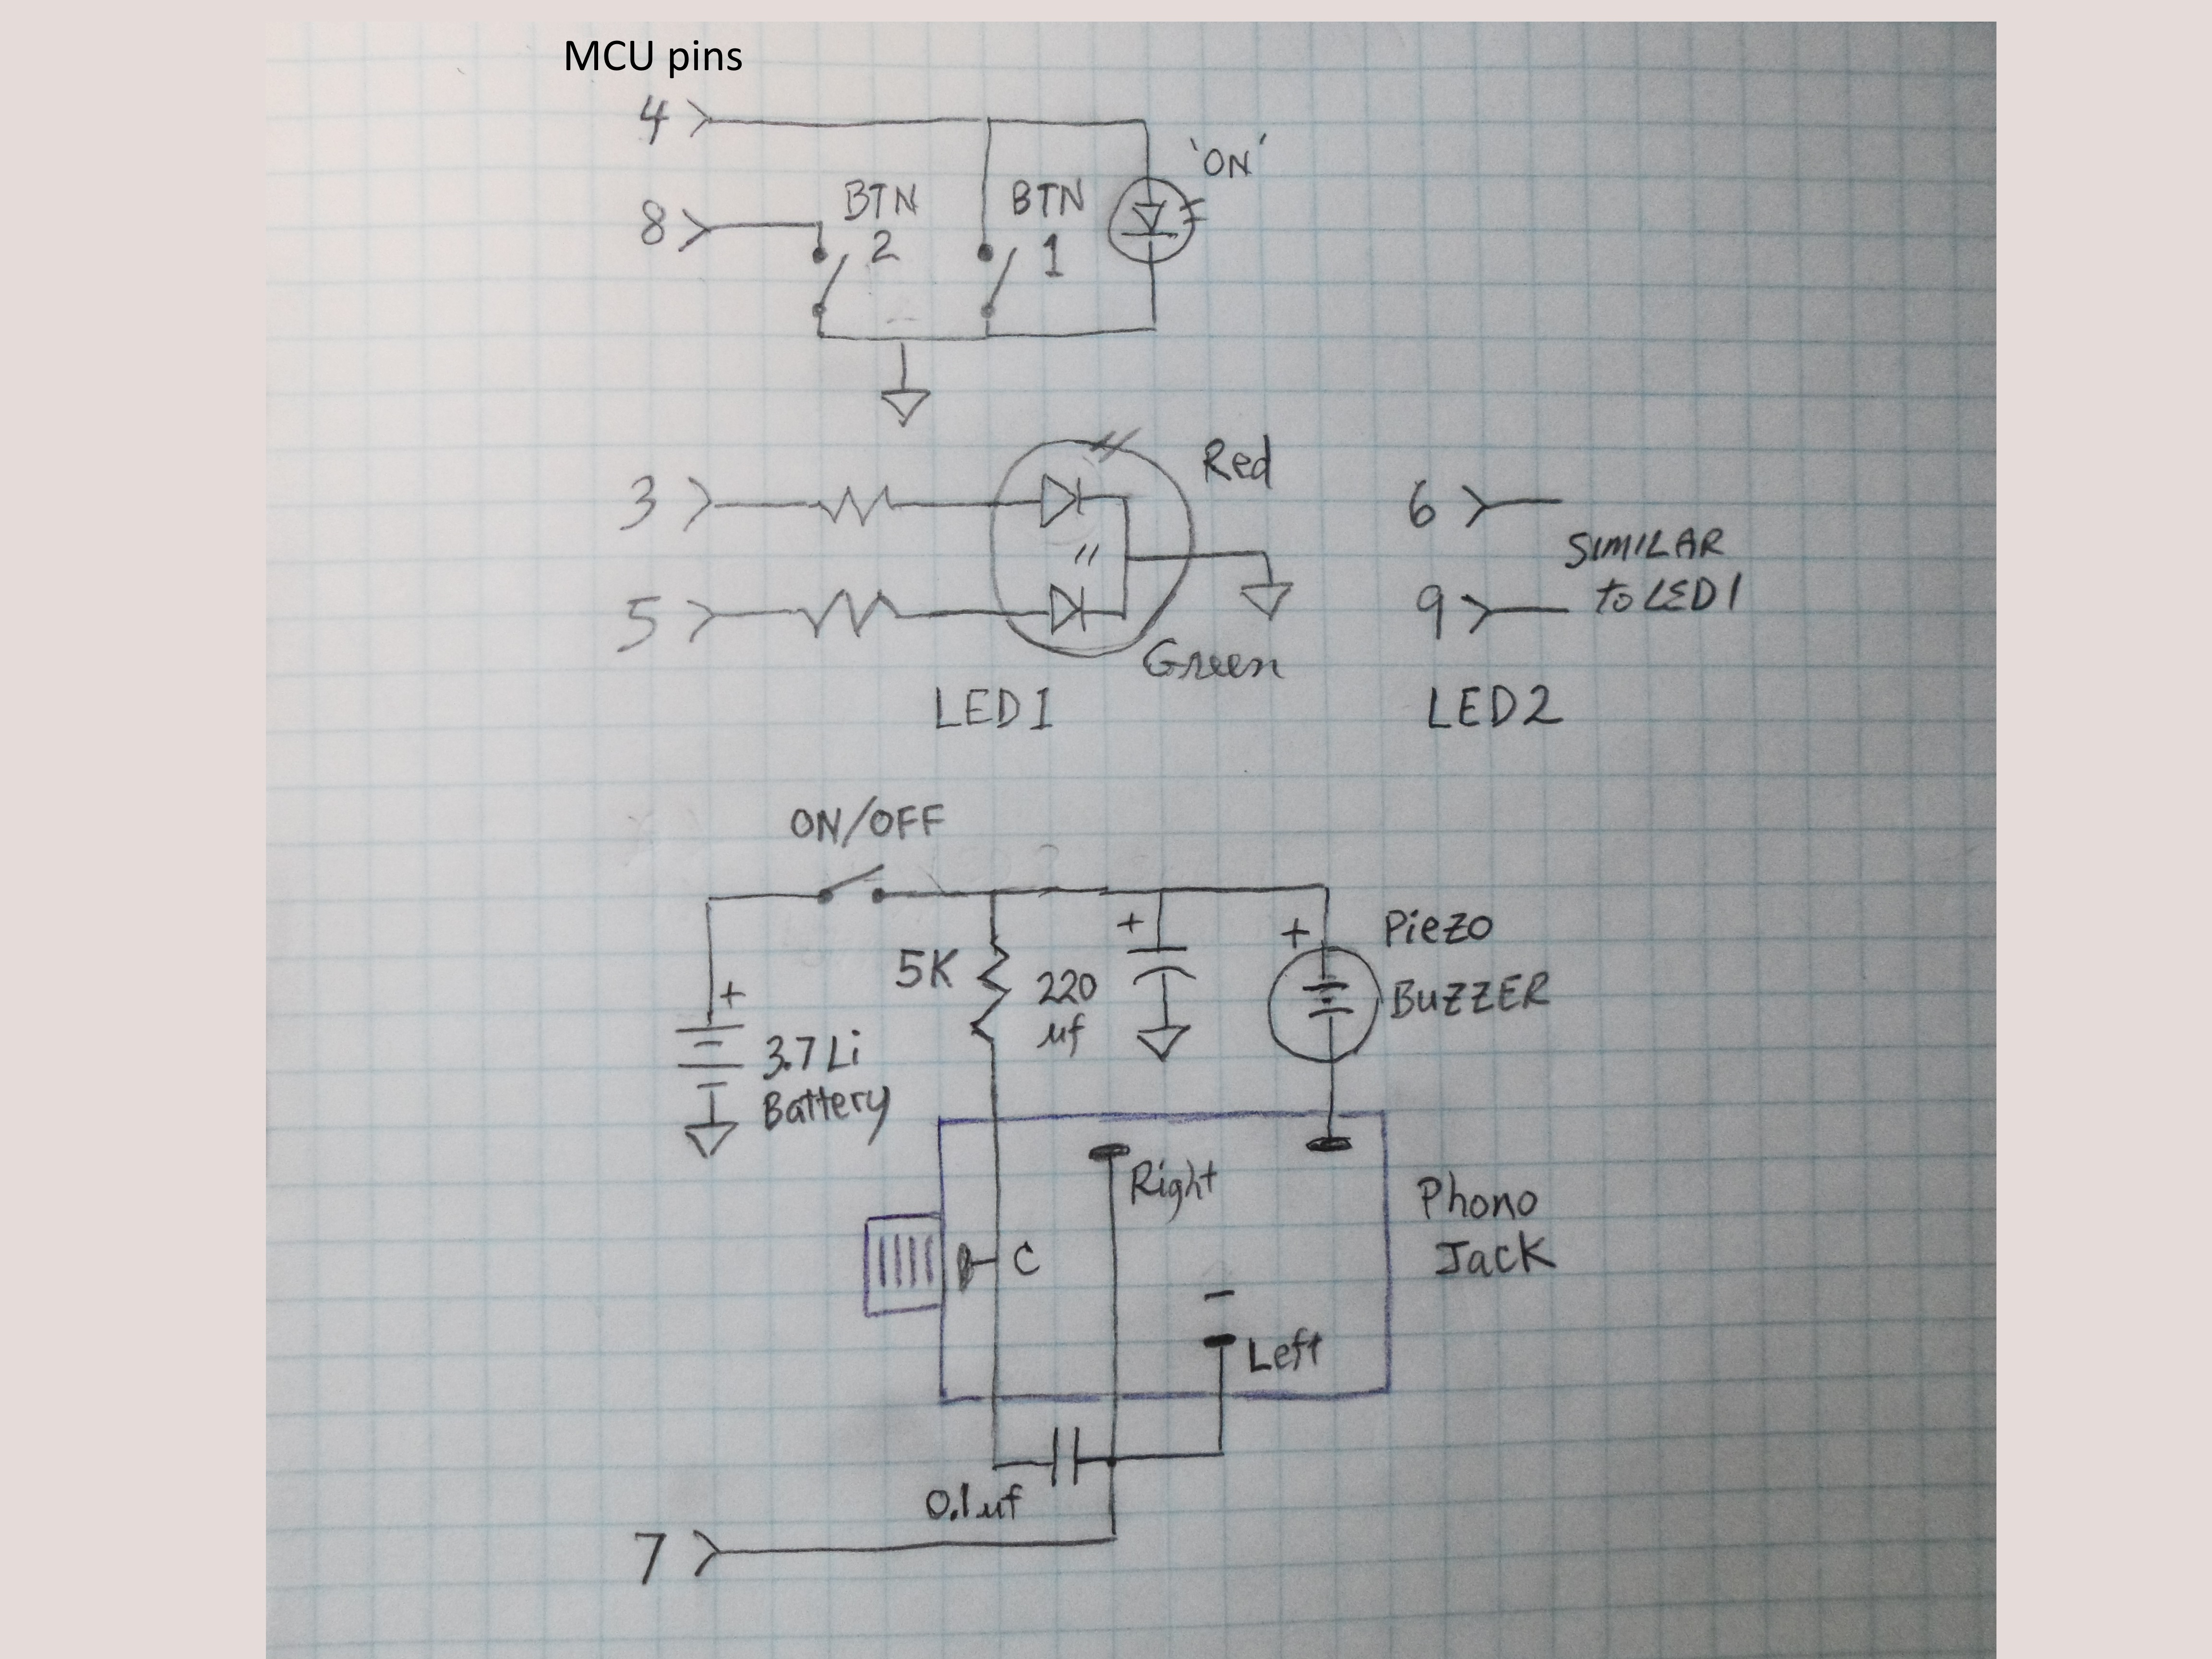 MCU pins
4
'ON'
8
BTN
2
BTN
1
3
Red
5
Green
LED1
6
SIMILAR
to LED1
9
LED2
ON/OFF
+
3.7 Li
Battery
5K
+
220
µf
+
Piezo
BUZZER
Right
C
Left
Phono
Jack
0.1µf
7